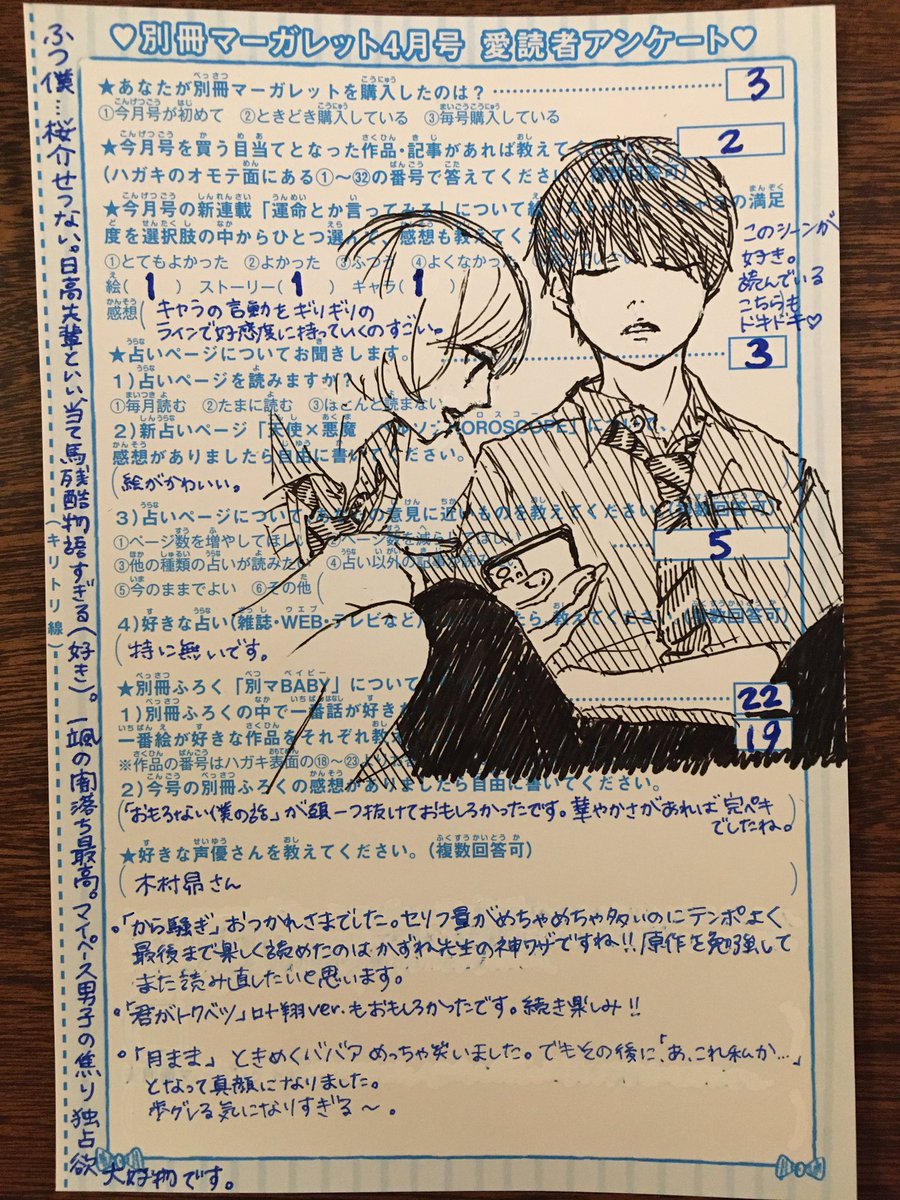 ♡別冊マーガレット4月号 愛読者アンケート♡
★あなたが別冊マーガレットを購入したのは？
3
①今月号が初めて ②ときどき購入している ③毎号購入している
★今月号を買う目当てとなった作品・記事があれば教えてくだ
2
(ハガキのオモテ面にある①〜㉜の番号で答えてください 複数回答可)
★今月号の新連載「運命とか言ってみる」について の満足
度を選択肢の中からひとつ選んで、感想も教えてくだ
①とてもよかった ②よかった ③ふつう ④よくなかった
絵( 1 ) ストーリー( 1 ) キャラ( 1 )
感想
キャラの言動をギリギリの
ラインで好感度に持っていくのすごい。
このシーンが
好き。
読んでいる
こちらも
ドキドキ♡
★占いページについてお聞きします。
3
1)占いページを読みますか？
①毎月読む ②たまに読む ③ほとんど読まない
2)新占いページ「天使×悪魔 OROSCOPE」に
感想がありましたら自由に書いてください。
(絵がかわいい。
3)占いページについて の意見に近いものを教えてください (複数回答可)
①ページ数を増やしてほしい ②ページ数を減らしてほしい
5
③他の種類の占いが読みたい ④占い以外の記事が読み
⑤今のままでよい ⑥その他(
4)好きな占い(雑誌・WEB・テレビなど) たら、教えてくださ (複数回答可)
(特に無いです。
★別冊ふろく「別マBABY」について
1)別冊ふろくの中で一番話が好き
22
一番絵が好きな作品をそれぞれ教え
19
※作品の番号はハガキ表面の⑱〜㉓より
2)今号の別冊ふろくの感想がありましたら自由に書いてください。
「おもろない僕の話」が頭一つ抜けておもしろかったです。華やかさがあれば完ペキ
でしたね。
★好きな声優さんを教えてください。(複数回答可)
(木村昴さん )
・「から騒ぎ」おつかれさまでした。セリフ量がめちゃめちゃ多いのにテンポよく
最後まで楽しく読めたのはかずね先生の神ワザですね!!原作を勉強して
また読み直したいと思います。
・「君がトクベツ」叶翔ver.もおもしろかったです。続き楽しみ!!
・「月まま」ときめくババアめっちゃ笑いました。でもその後に「あ、これ私か…」
となって真顔になりました。
歩グレる気になりすぎる〜。
ふつ僕…桜介せつない。日高先輩といい当て馬残酷物語すぎる(好き)。一颯の闇落ち最高。マイペース男子の焦り独占欲
大好物です。
(キリトリ線)